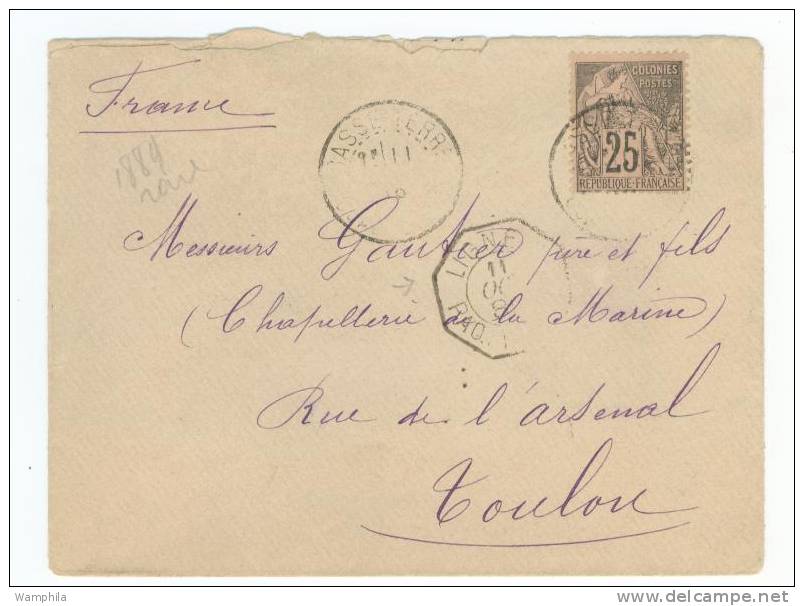 France
COLONIES
POSTES
25
RÉPUBLIQUE FRANÇAISE
BASSE-TERRE
11
1889
rare
LIGNE
11
OC
Messieurs Gautier père et fils
(Chapellerie de la Marine)
Rue de l'arsenal
Toulon
Wamphila
delcampe.net